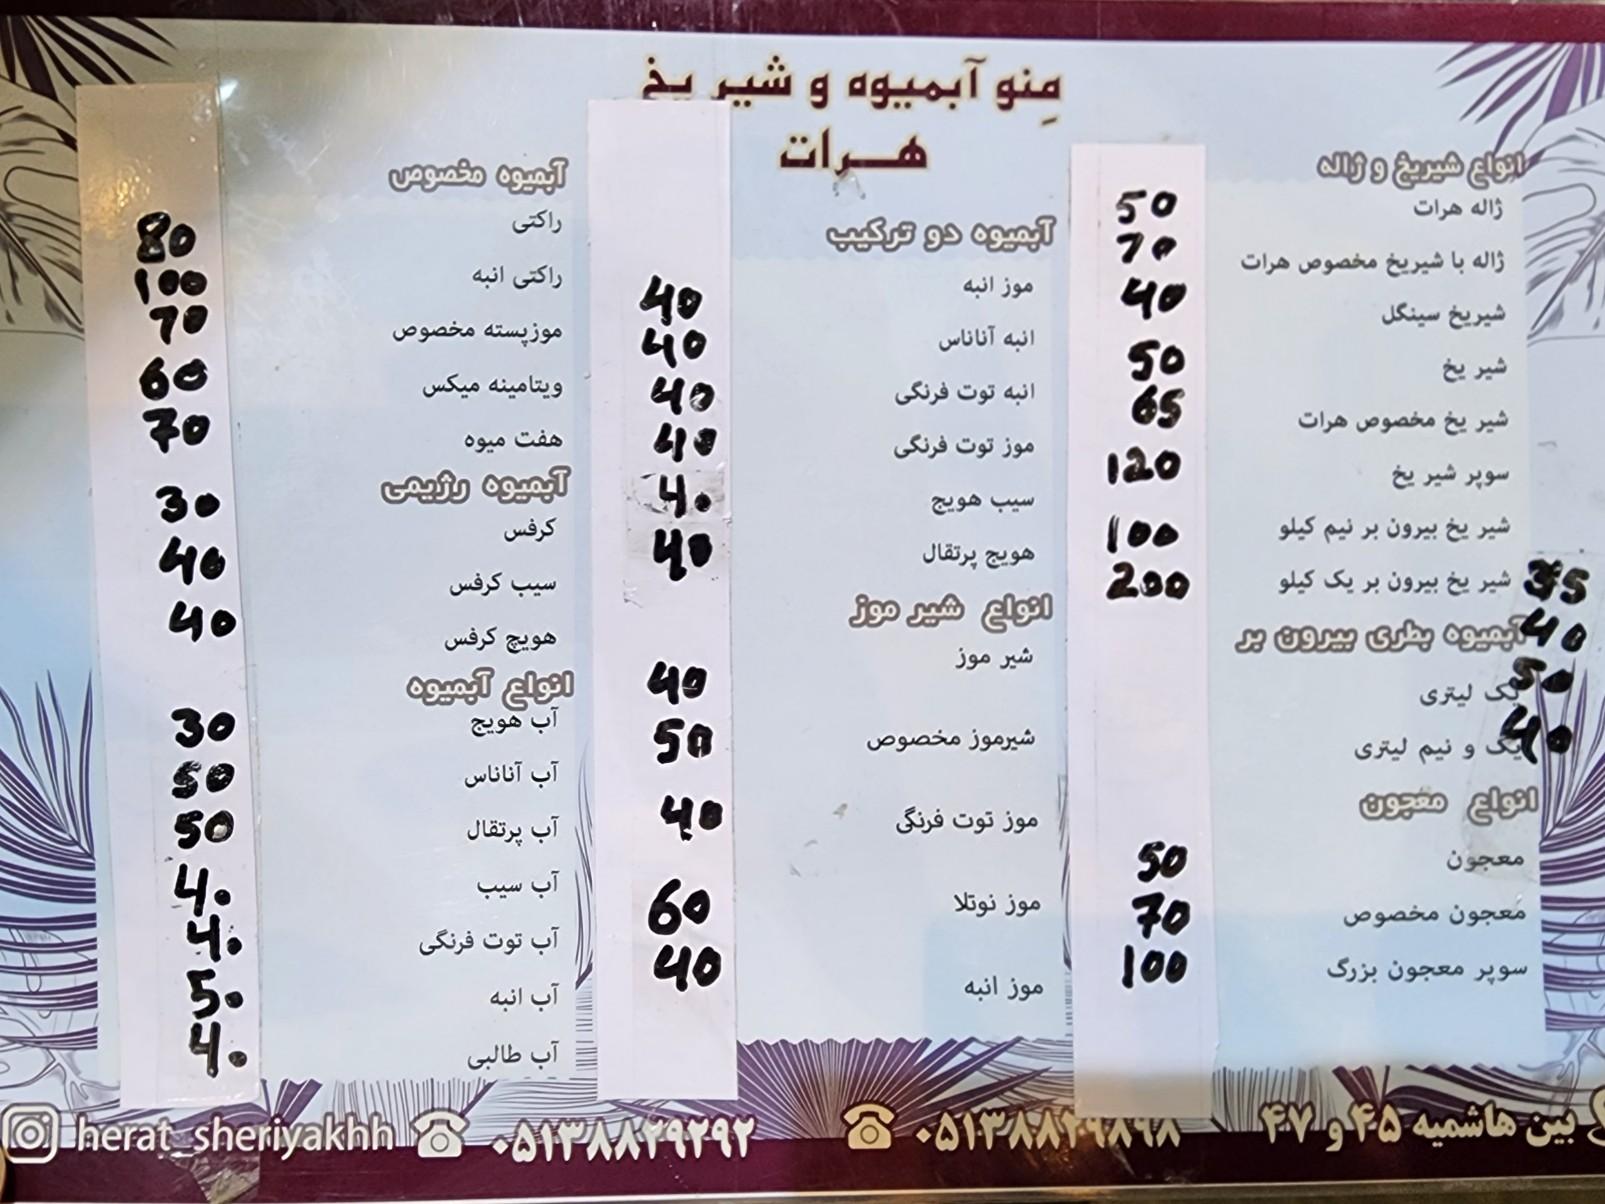 مِنو آبمیوه و شیر یخ
هرات
انواع شیریخ و ژاله
ژاله هرات 50
ژاله با شیریخ مخصوص هرات 70
شیریخ سینگل 40
شیر یخ 50
شیر یخ مخصوص هرات 65
سوپر شیر یخ 120
شیر یخ بیرون بر نیم کیلو 100
شیر یخ بیرون بر یک کیلو 200
35
آبمیوه بطری بیرون بر 40
یک لیتری 50
یک و نیم لیتری 40
انواع معجون
معجون 50
معجون مخصوص 70
سوپر معجون بزرگ 100
آبمیوه دو ترکیب
موز انبه 40
انبه آناناس 40
انبه توت فرنگی 40
موز توت فرنگی 40
سیب هویج 40
هویج پرتقال 40
انواع شیر موز
شیر موز 40
شیرموز مخصوص 50
موز توت فرنگی 40
موز نوتلا 60
موز انبه 40
آبمیوه مخصوص
راکتی 80
راکتی انبه 100
موزپسته مخصوص 70
ویتامینه میکس 60
هفت میوه 70
آبمیوه رژیمی
کرفس 30
سیب کرفس 40
هویج کرفس 40
انواع آبمیوه
آب هویج 30
آب آناناس 50
آب پرتقال 50
آب سیب 40
آب توت فرنگی 40
آب انبه 50
آب طالبی 40
بین هاشمیه ۴۵ و ۴۷
۰۵۱۳۸۸۲۹۸۹۸
۰۵۱۳۸۸۲۹۲۹۲
herat_sheriyakhh